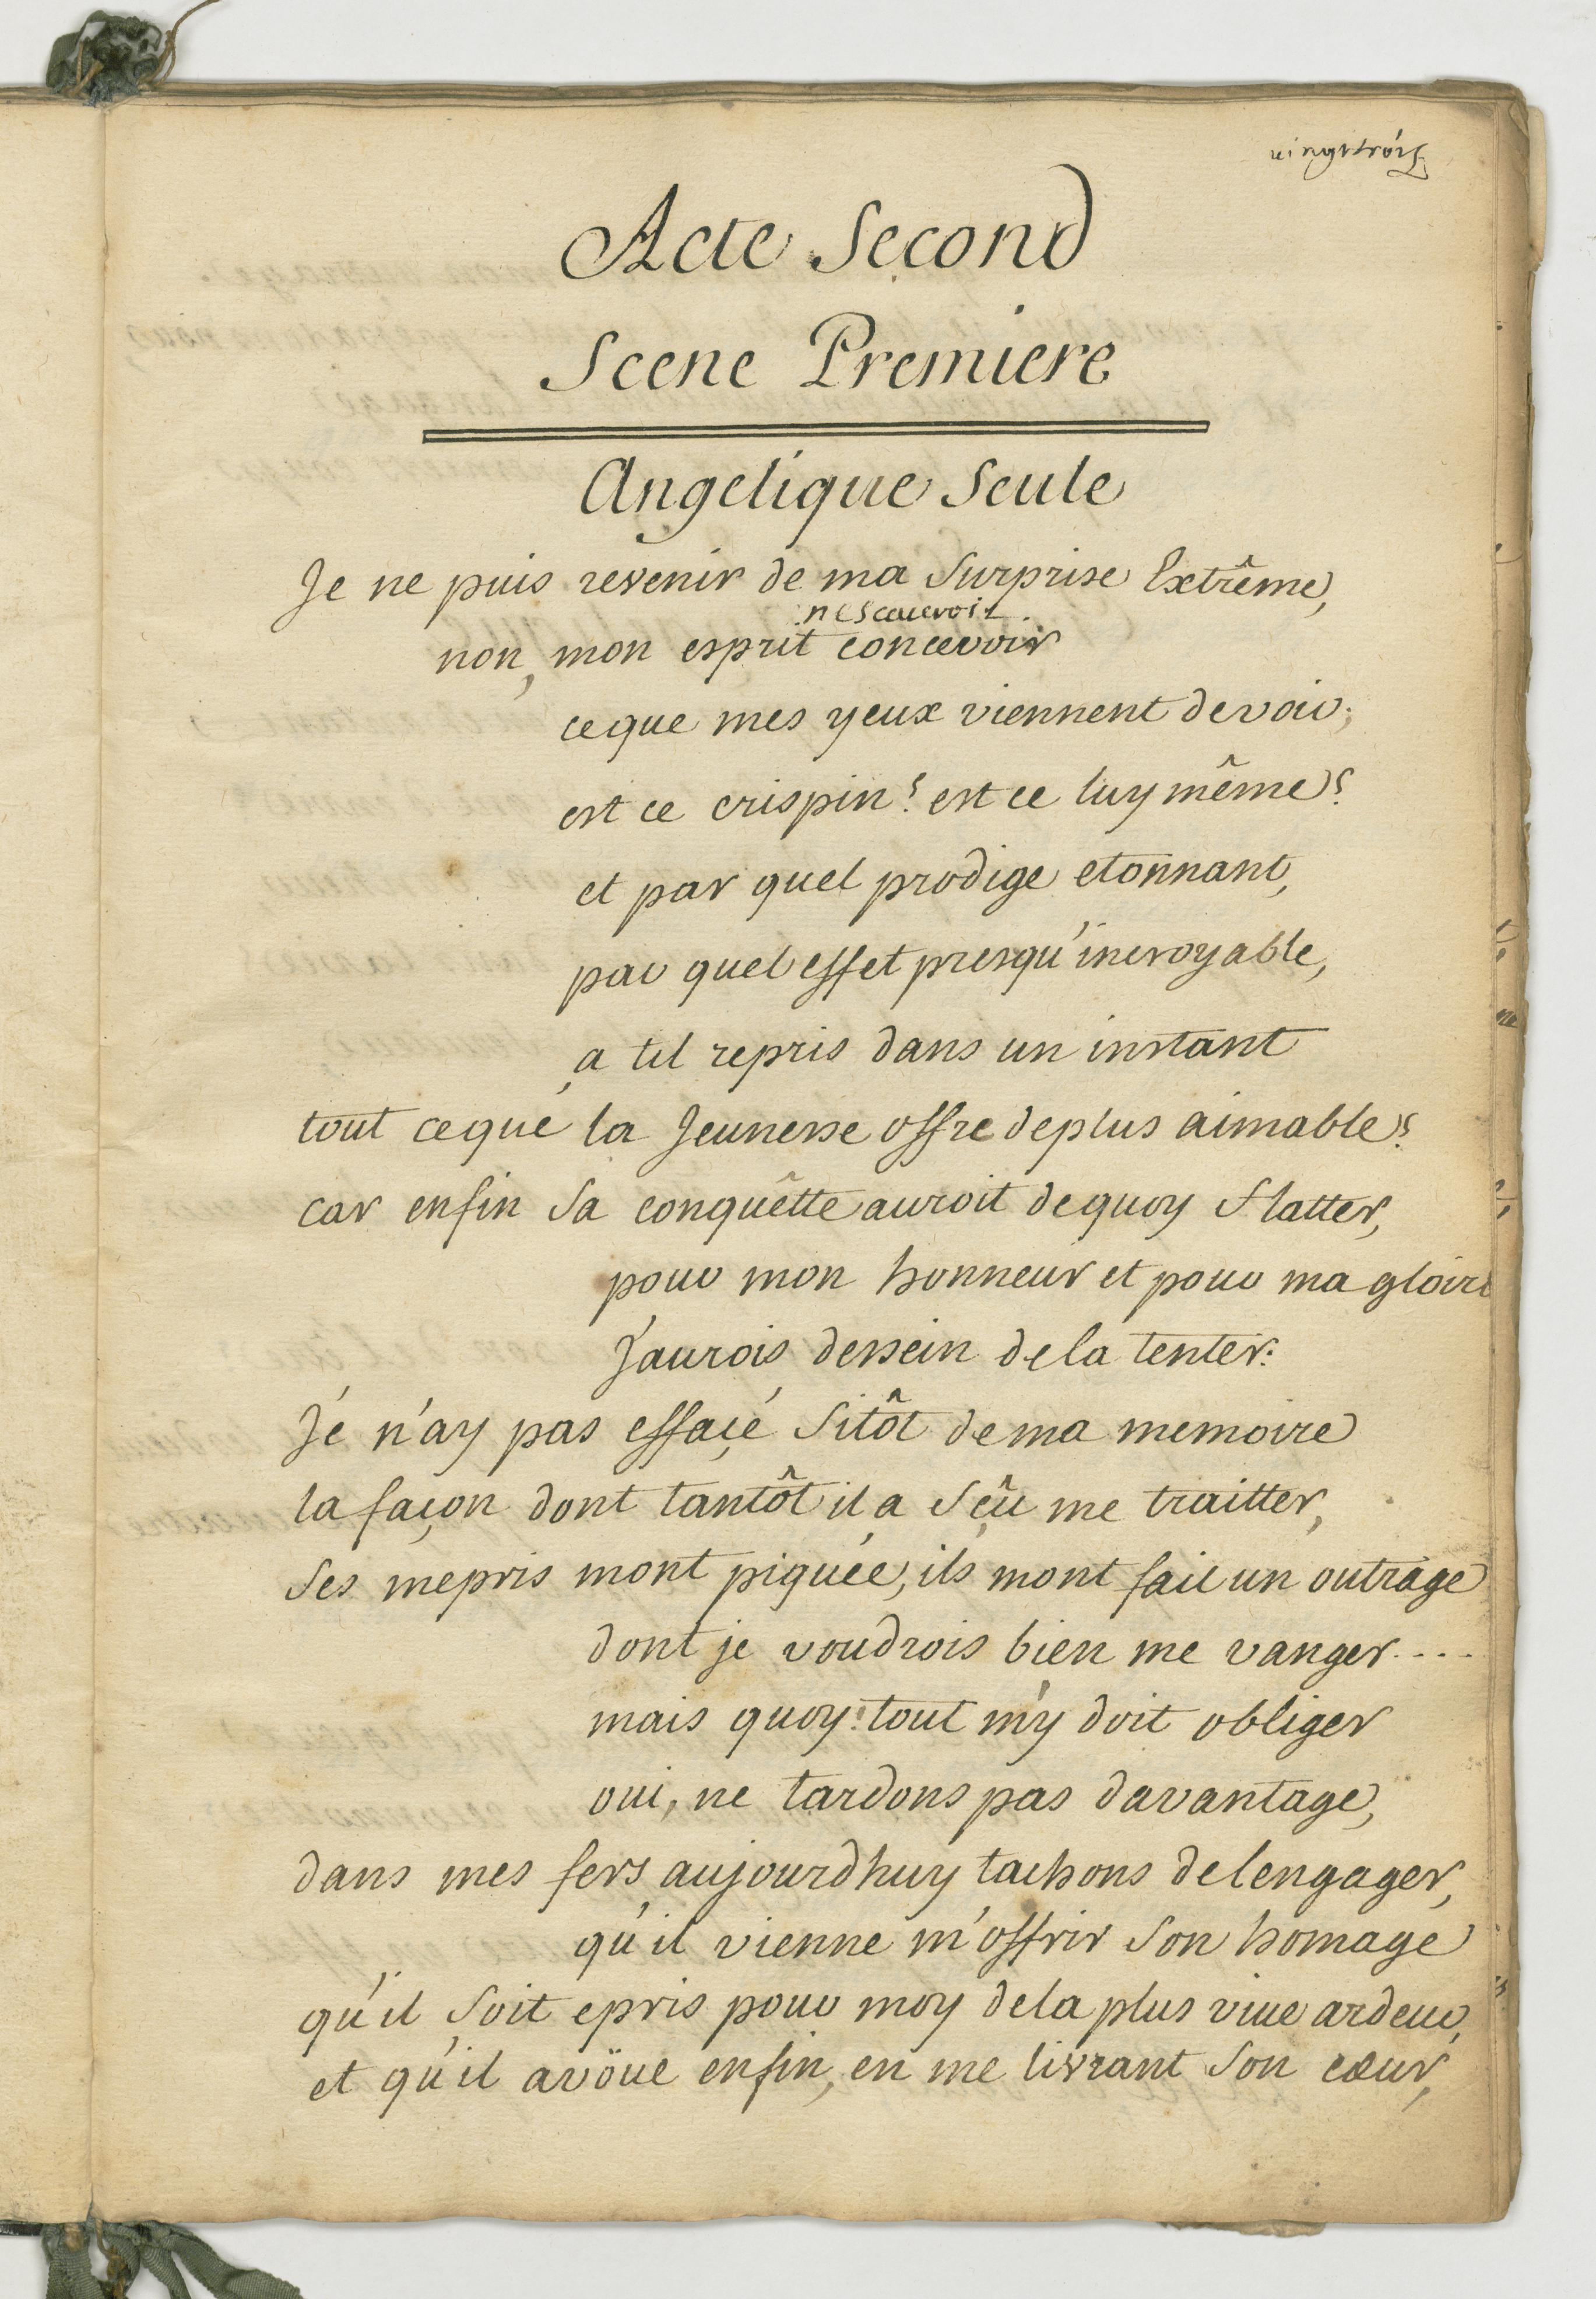 vingt trois
Acte Second
Scene Premiere
Angelique Seule
Je ne puis revenir de ma Surprise Extrême,
ne scauroit
non, mon esprit concevoir
ceque mes yeux viennent devoir;
est ce crispin? est ce luy même?
et par quel prodige etonnant,
par quel effet presqu'incroyable,
a til repris dans un instant
tout ceque la Jeunesse offre deplus aimable?
car enfin Sa conquêtte auroit dequoy flatter,
pour mon honneur et pour ma gloire
J'aurois dessein dela tenter:
Je n'ay pas effaçé Sitôt dema memoire
la façon dont tantôt il a Sçû me traitter,
Ses mepris mont piquée, ils mont fait un outrage
dont je voudrois bien me vanger....
mais quoy! tout m'y doit obliger
oui, ne tardons pas davantage,
dans mes fers aujourdhuy tachons delengager,
qu'il vienne m'offrir Son homage
qu'il Soit epris pour moy dela plus vive ardeur,
et qu'il avöue enfin, en me livrant Son cœur,